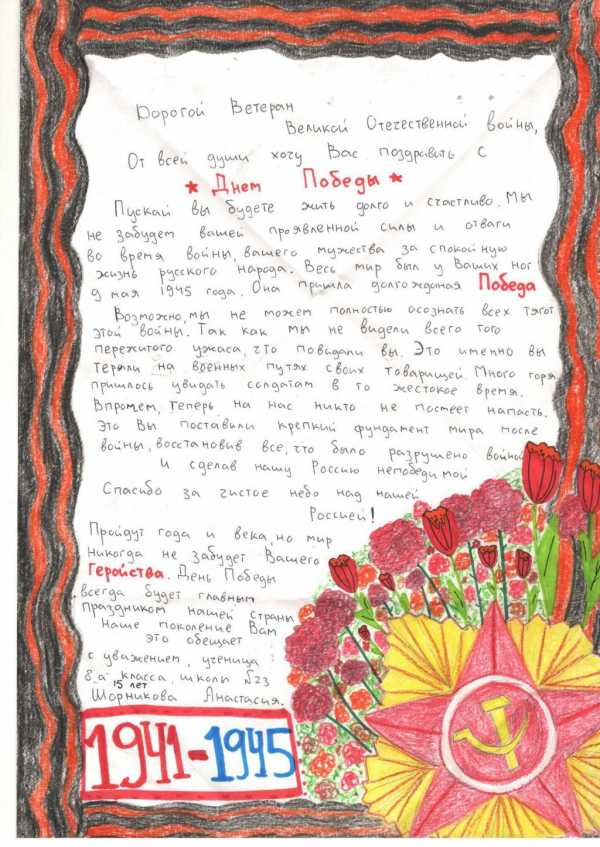 Дорогой Ветеран
Великой Отечественной войны,
От всей души хочу Вас поздравить с
* Днем Победы *
Пускай вы будете жить долго и счастливо. Мы
не забудем вашей проявленной силы и отваги
во время войны, вашего мужества за спокойную
жизнь русского народа. Весь мир был у Ваших ног
9 мая 1945 года. Она пришла долгожданая Победа
Возможно, мы не можем полностью осознать всех тягот
этой войны. Так как мы не видели всего того
пережитого ужаса, что повидали вы. Это именно вы
теряли на военных путях своих товарищей. Много горя
пришлось увидать солдатам в то жестокое время.
Впрочем, теперь на нас никто не посмеет напасть.
Это Вы поставили крепкий фундамент мира после
войны, восстановив все, что было разрушено войной
И сделав нашу Россию непобедимой
Спасибо за чистое небо над нашей
Россией!
Пройдут года и века, но мир
никогда не забудет Вашего
Геройства. День Победы
всегда будет главным
праздником нашей страны
Наше поколение Вам
это обещает
с уважением, ученица
8 а класса, школы №23
15 лет
Шорникова Анастасия.
1941-1945